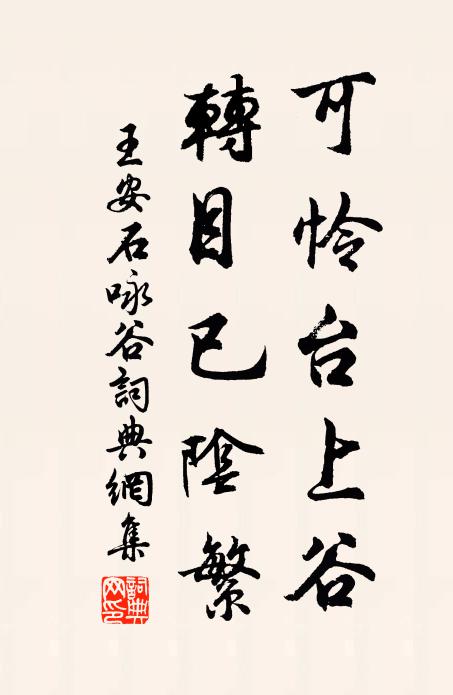 可怜台上谷
轉目已陰繁
王安石咏谷詞典網集
詞典
网印